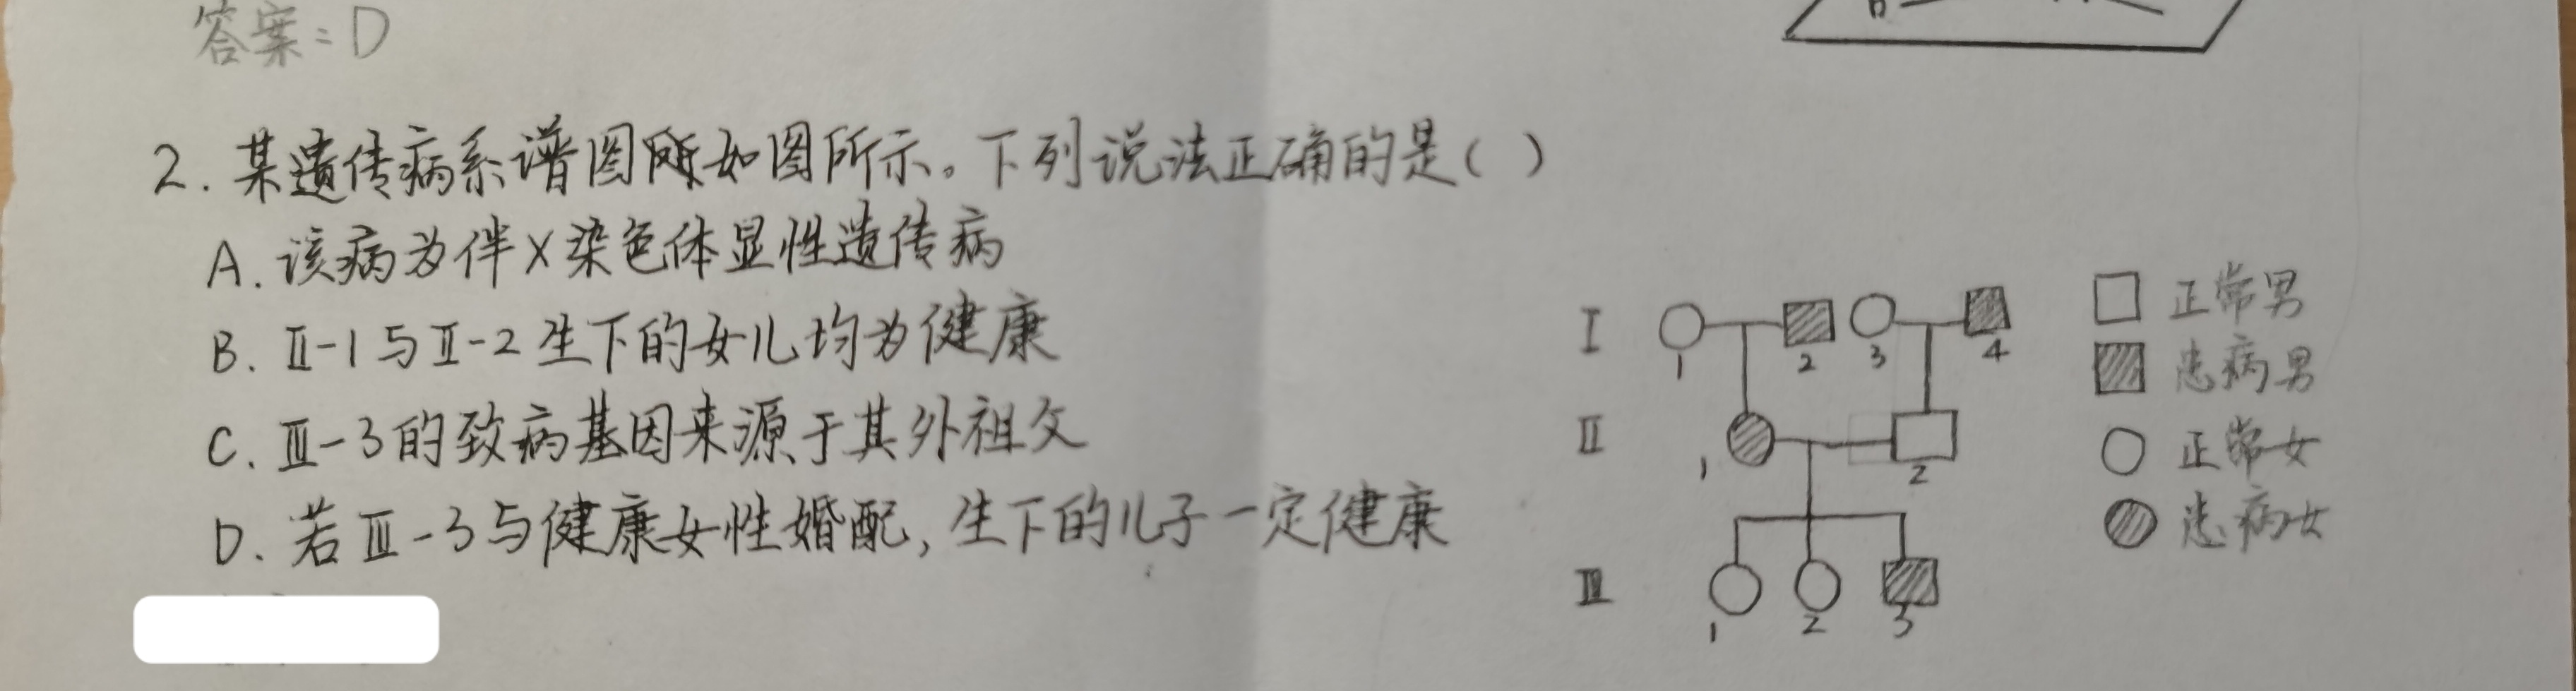 答案：D
2. 某遗传病系谱图如图所示。下列说法正确的是（ ）
A. 该病为伴X染色体显性遗传病
B. Ⅱ-1与Ⅱ-2生下的女儿均为健康
C. Ⅲ-3的致病基因来源于其外祖父
D. 若Ⅲ-3与健康女性婚配，生下的儿子一定健康
Ⅰ 1 2 3 4
Ⅱ 1 2
Ⅲ 1 2 3
正常男
患病男
正常女
患病女